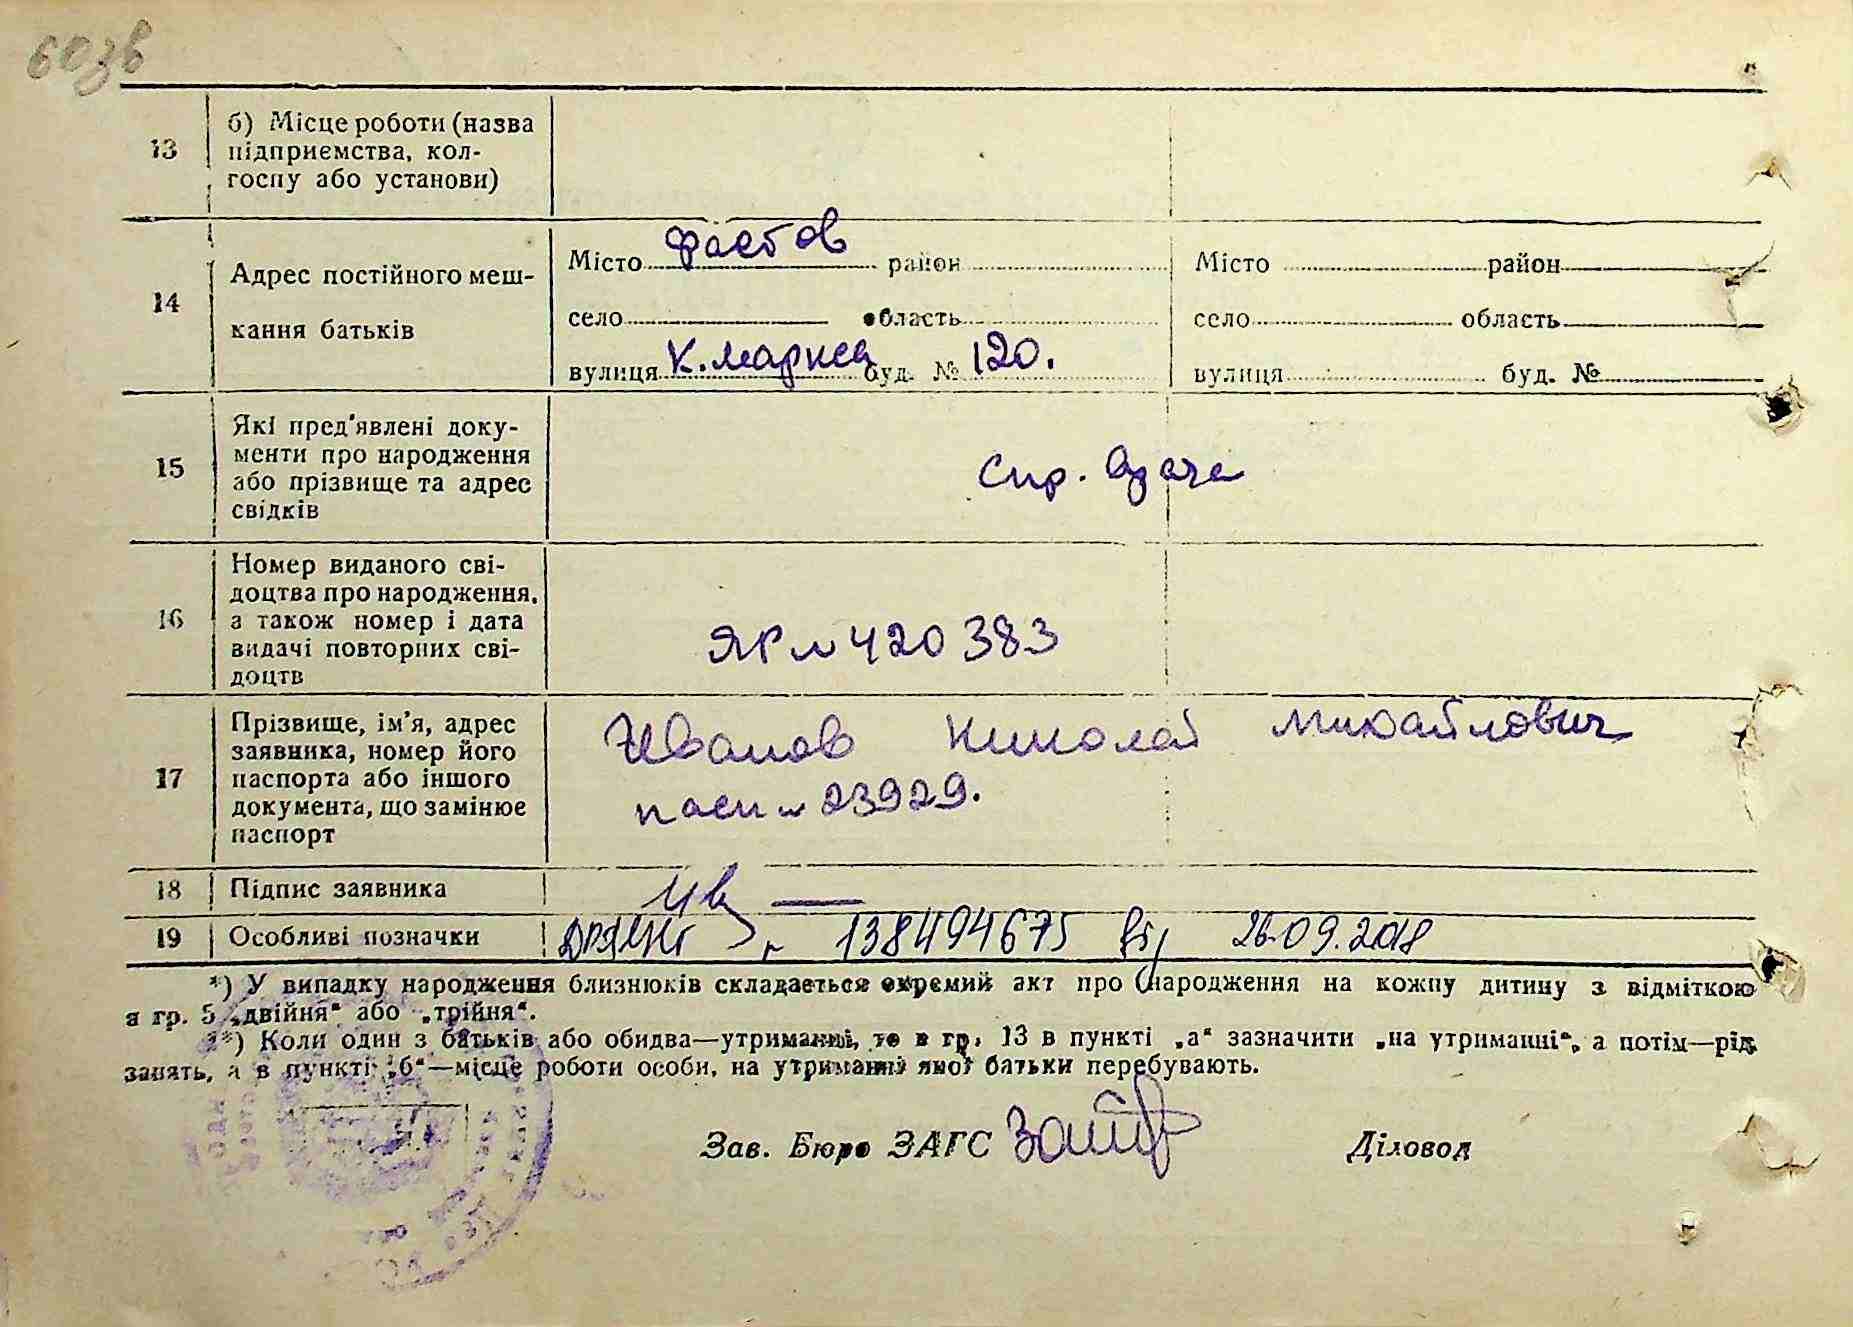 60зв
13 б) Місце роботи (назва
підприємства, кол-
госпу або установи)
14 Адрес постійного меш-
кання батьків
Місто Фастов район
село область
вулиця К. Маркса буд. № 120.
Місто район
село область
вулиця буд. №
15 Які пред'явлені доку-
менти про народження
або прізвище та адрес
свідків
Спр.
16 Номер виданого сві-
доцтва про народження,
а також номер і дата
видачі повторних сві-
доцтв
ЯР № 420383
17 Прізвище, ім'я, адрес
заявника, номер його
паспорта або іншого
документа, що замінює
паспорт
Иванов Николай Михайлович
пасп № 23929.
18 Підпис заявника Ив
19 Особливі позначки 138494675 від 26.09.2018
*) У випадку народження близнюків складається окремий акт про народження на кожну дитину з відміткою
в гр. 5 „двійня“ або „трійня“.
**) Коли один з батьків або обидва—утриманні, то в гр. 13 в пункті „а“ зазначити „на утриманні“, а потім—рід
занять, а в пункті „б“—місце роботи особи, на утриманні якої батьки перебувають.
Зав. Бюро ЗАГС
Діловод